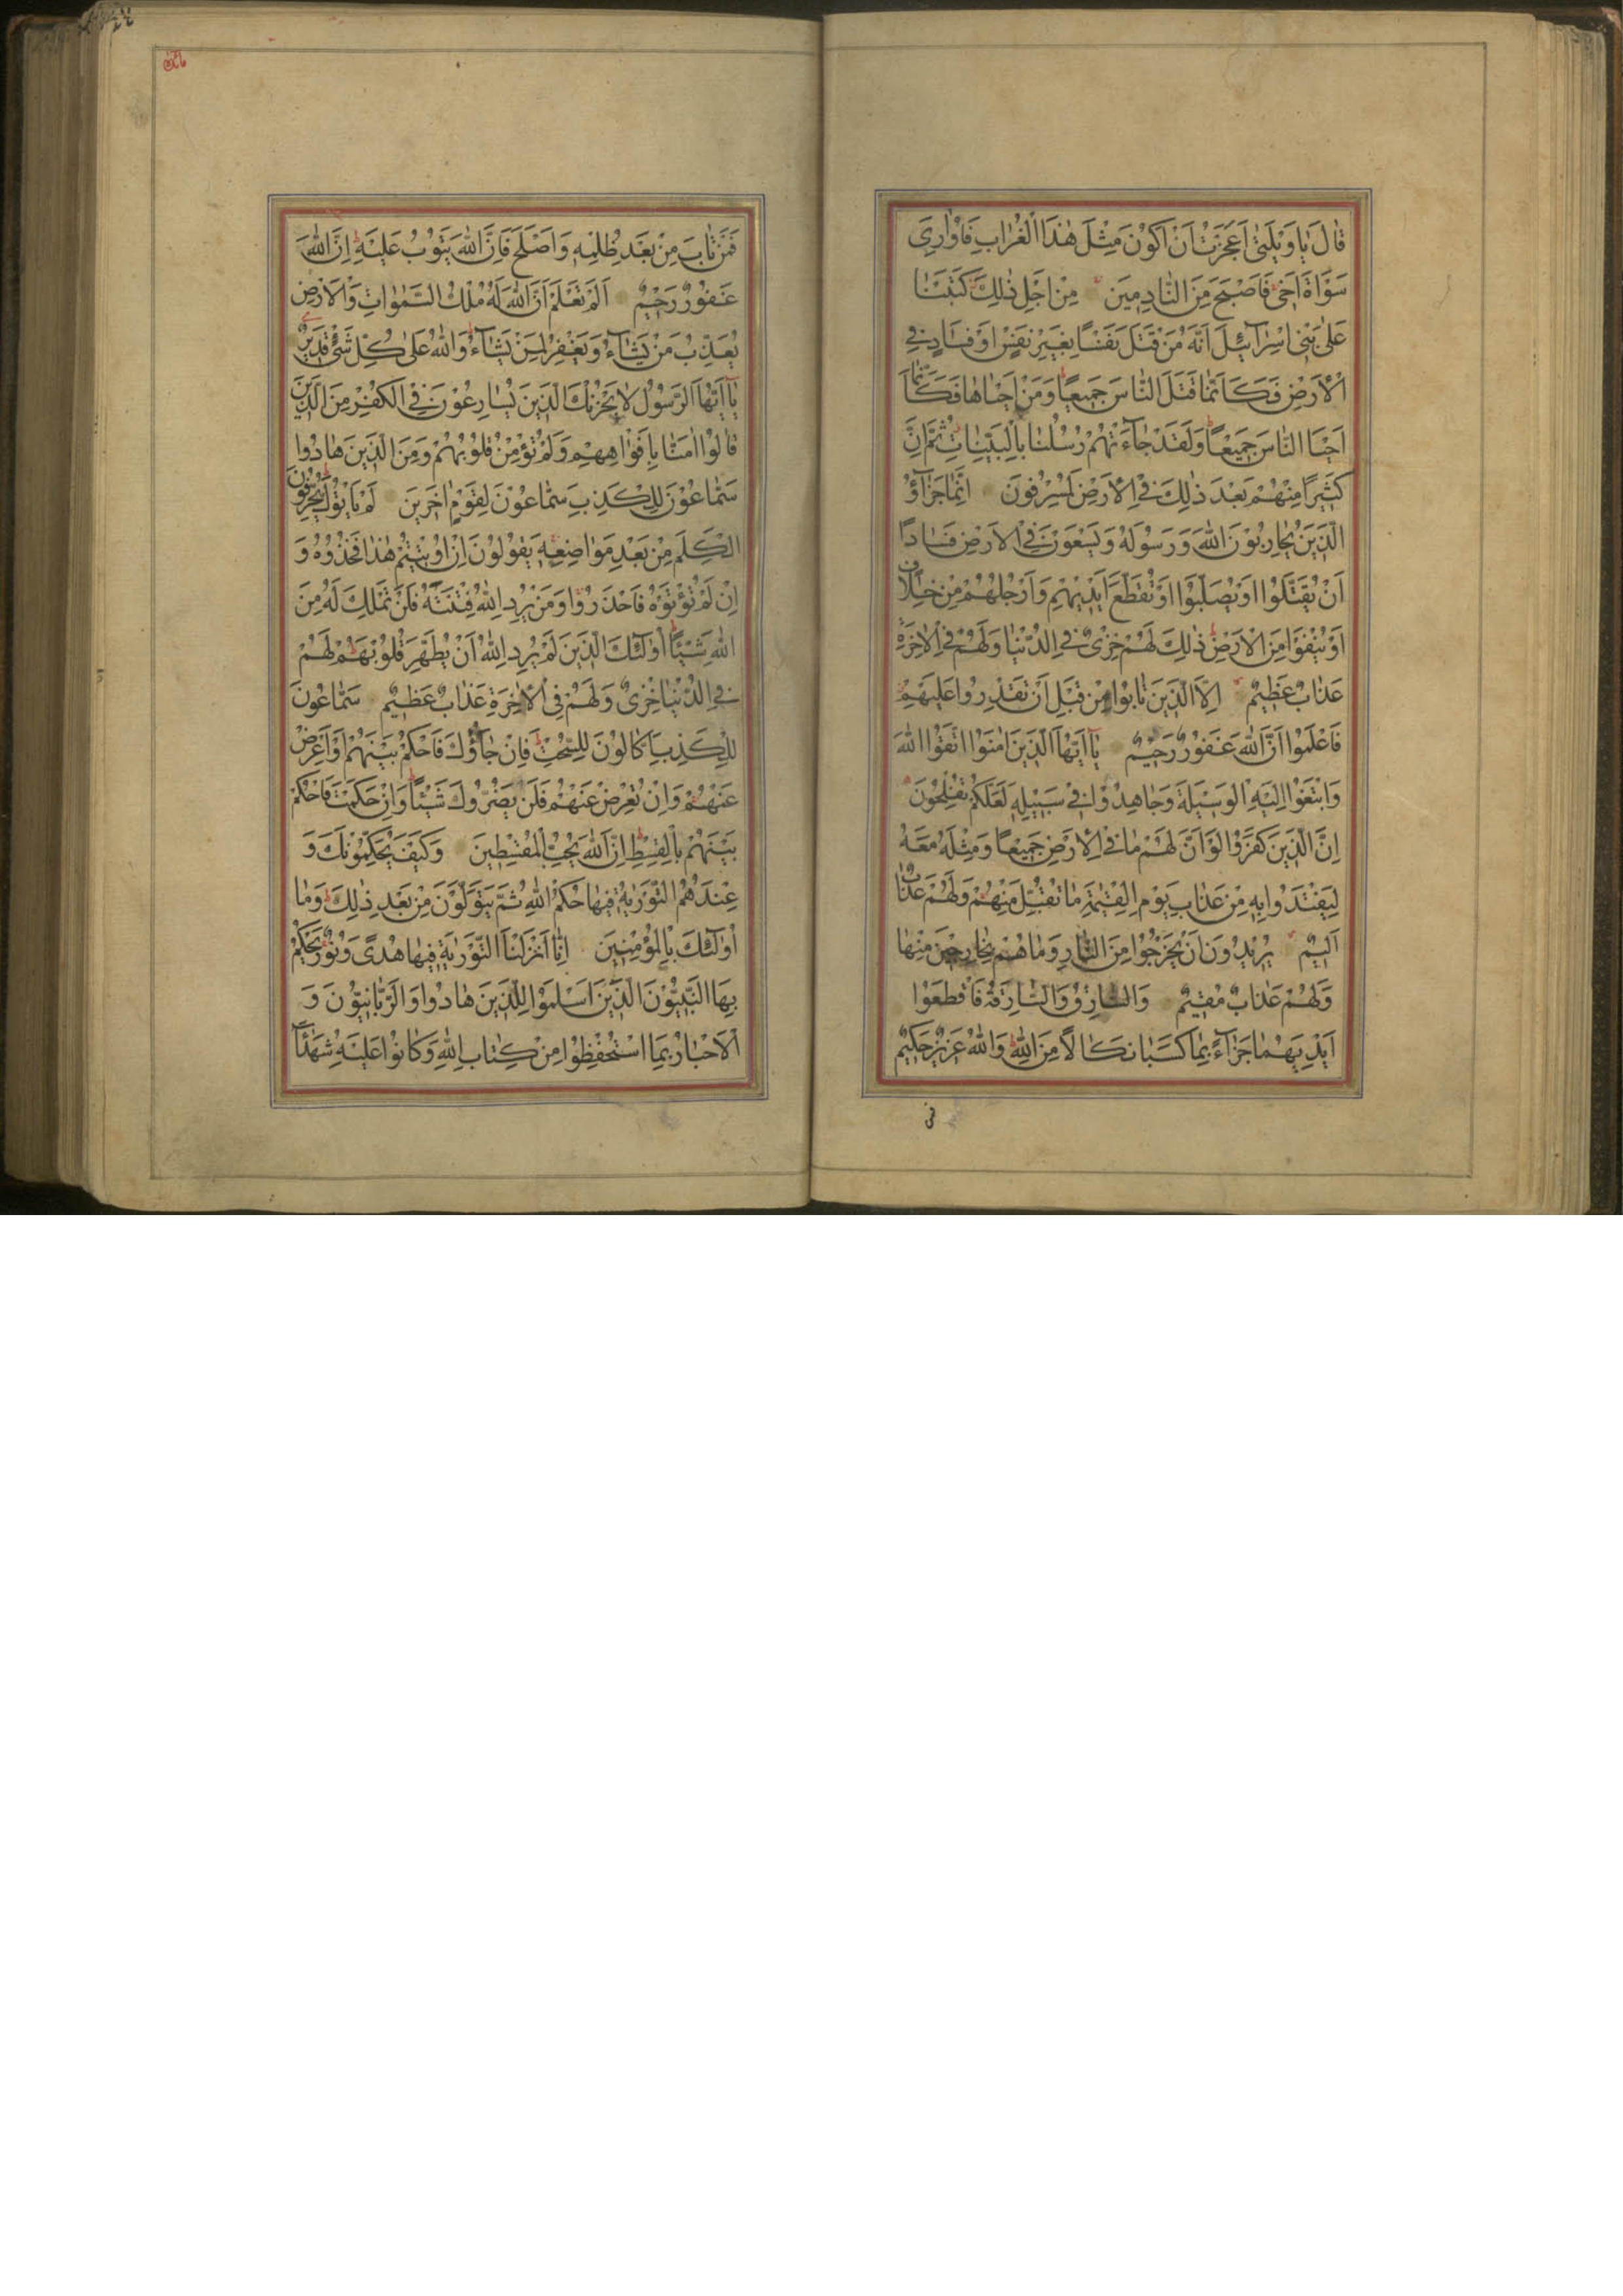 قَالَ يَا وَيْلَتٰى اَعَجَزْتُ اَنْ اَكُوْنَ مِثْلَ هٰذَا الْغُرَابِ فَاُوَارِيَ
سَوْاَةَ اَخٖى فَاَصْبَحَ مِنَ النَّادِمٖينَ مِنْ اَجْلِ ذٰلِكَ كَتَبْنَا
عَلٰى بَنٖى اِسْرَآئٖلَ اَنَّهُ مَنْ قَتَلَ نَفْسًا بِغَيْرِ نَفْسٍ اَوْ فَسَادٍ فِي
الْاَرْضِ فَكَاَنَّمَا قَتَلَ النَّاسَ جَمٖيعًا وَمَنْ اَحْيَاهَا فَكَاَنَّمَآ
اَحْيَا النَّاسَ جَمٖيعًا وَلَقَدْ جَآءَتْهُمْ رُسُلُنَا بِالْبَيِّنَاتِ ثُمَّ اِنَّ
كَثٖيرًا مِنْهُمْ بَعْدَ ذٰلِكَ فِي الْاَرْضِ لَمُسْرِفُونَ اِنَّمَا جَزَآؤُ
الَّذٖينَ يُحَارِبُوْنَ اللّٰهَ وَرَسُوْلَهُ وَيَسْعَوْنَ فِي الْاَرْضِ فَسَادًا
اَنْ يُقَتَّلُوْا اَوْ يُصَلَّبُوْا اَوْ تُقَطَّعَ اَيْدٖيْهِمْ وَاَرْجُلُهُمْ مِنْ خِلَافٍ
اَوْ يُنْفَوْا مِنَ الْاَرْضِ ذٰلِكَ لَهُمْ خِزْىٌ فِي الدُّنْيَا وَلَهُمْ فِي الْاٰخِرَةِ
عَذَابٌ عَظٖيمٌ اِلَّا الَّذٖينَ تَابُوْا مِنْ قَبْلِ اَنْ تَقْدِرُوا عَلَيْهِمْ
فَاعْلَمُوْا اَنَّ اللّٰهَ غَفُوْرٌ رَحٖيْمٌ يَآ اَيُّهَا الَّذٖينَ اٰمَنُوْا اتَّقُوْا اللّٰهَ
وَابْتَغُوْا اِلَيْهِ الْوَسٖيْلَةَ وَجَاهِدُوْا فٖي سَبٖيْلِهٖ لَعَلَّكُمْ تُفْلِحُوْنَ
اِنَّ الَّذٖينَ كَفَرُوْا لَوْ اَنَّ لَهُمْ مَا فِي الْاَرْضِ جَمٖيْعًا وَمِثْلَهُ مَعَهُ
لِيَفْتَدُوْا بِهٖ مِنْ عَذَابِ يَوْمِ الْقِيٰمَةِ مَا تُقُبِّلَ مِنْهُمْ وَلَهُمْ عَذَابٌ
اَلٖيْمٌ يُرٖيْدُوْنَ اَنْ يَخْرُجُوْا مِنَ النَّارِ وَمَا هُمْ بِخَارِجٖيْنَ مِنْهَا
وَلَهُمْ عَذَابٌ مُقٖيْمٌ وَالسَّارِقُ وَالسَّارِقَةُ فَاقْطَعُوْا
اَيْدِيَهُمَا جَزَآءً بِمَا كَسَبَا نَكَالًا مِنَ اللّٰهِ وَاللّٰهُ عَزٖيْزٌ حَكٖيْمٌ
فمن
مائدة
فَمَنْ تَابَ مِنْ بَعْدِ ظُلْمِهٖ وَاَصْلَحَ فَاِنَّ اللّٰهَ يَتُوْبُ عَلَيْهِ اِنَّ اللّٰهَ
غَفُوْرٌ رَحٖيْمٌ اَلَمْ تَعْلَمْ اَنَّ اللّٰهَ لَهُ مُلْكُ السَّمٰوَاتِ وَالْاَرْضِ
يُعَذِّبُ مَنْ يَشَآءُ وَيَغْفِرُ لِمَنْ يَشَآءُ وَاللّٰهُ عَلٰى كُلِّ شَىْءٍ قَدٖيْرٌ
يَآ اَيُّهَا الرَّسُوْلُ لَا يَحْزُنْكَ الَّذٖينَ يُسَارِعُوْنَ فِي الْكُفْرِ مِنَ الَّذٖينَ
قَالُوْا اٰمَنَّا بِاَفْوَاهِهِمْ وَلَمْ تُؤْمِنْ قُلُوْبُهُمْ وَمِنَ الَّذٖينَ هَادُوْا
سَمَّاعُوْنَ لِلْكَذِبِ سَمَّاعُوْنَ لِقَوْمٍ اٰخَرٖينَ لَمْ يَاْتُوْكَ يُحَرِّفُوْنَ
الْكَلِمَ مِنْ بَعْدِ مَوَاضِعِهٖ يَقُوْلُوْنَ اِنْ اُوْتٖيْتُمْ هٰذَا فَخُذُوْهُ وَ
اِنْ لَمْ تُؤْتَوْهُ فَاحْذَرُوْا وَمَنْ يُرِدِ اللّٰهُ فِتْنَتَهُ فَلَنْ تَمْلِكَ لَهُ مِنَ
اللّٰهِ شَيْئًا اُولٰٓئِكَ الَّذٖينَ لَمْ يُرِدِ اللّٰهُ اَنْ يُطَهِّرَ قُلُوْبَهُمْ لَهُمْ
فِي الدُّنْيَا خِزْىٌ وَلَهُمْ فِي الْاٰخِرَةِ عَذَابٌ عَظٖيْمٌ سَمَّاعُوْنَ
لِلْكَذِبِ اَكَّالُوْنَ لِلسُّحْتِ فَاِنْ جَآؤُكَ فَاحْكُمْ بَيْنَهُمْ اَوْ اَعْرِضْ
عَنْهُمْ وَاِنْ تُعْرِضْ عَنْهُمْ فَلَنْ يَضُرُّوْكَ شَيْئًا وَاِنْ حَكَمْتَ فَاحْكُمْ
بَيْنَهُمْ بِالْقِسْطِ اِنَّ اللّٰهَ يُحِبُّ الْمُقْسِطٖينَ وَكَيْفَ يُحَكِّمُوْنَكَ وَ
عِنْدَهُمُ التَّوْرٰيةُ فٖيْهَا حُكْمُ اللّٰهِ ثُمَّ يَتَوَلَّوْنَ مِنْ بَعْدِ ذٰلِكَ وَمَا
اُولٰٓئِكَ بِالْمُؤْمِنٖيْنَ اِنَّا اَنْزَلْنَا التَّوْرٰيةَ فٖيْهَا هُدًى وَنُوْرٌ يَحْكُمُ
بِهَا النَّبِيُّوْنَ الَّذٖينَ اَسْلَمُوْا لِلَّذٖينَ هَادُوْا وَالرَّبَّانِيُّوْنَ وَ
الْاَحْبَارُ بِمَا اسْتُحْفِظُوْا مِنْ كِتَابِ اللّٰهِ وَكَانُوْا عَلَيْهِ شُهَدَآءَ